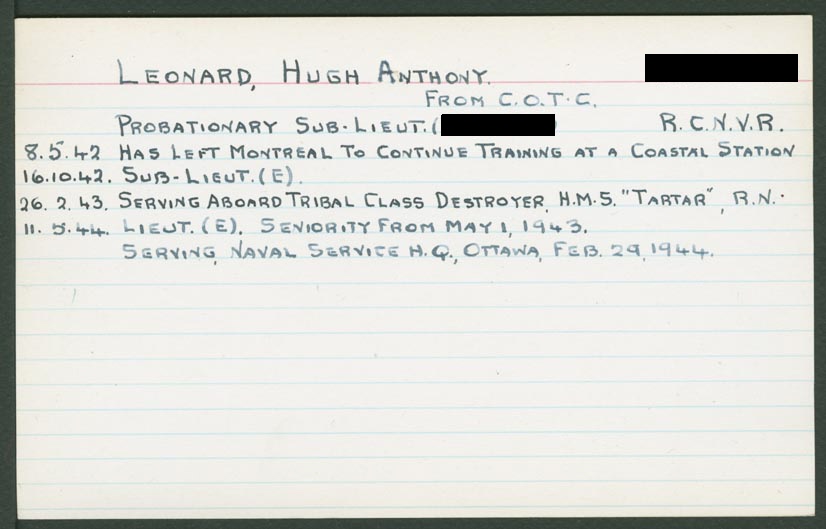 LEONARD, HUGH ANTHONY.
FROM C.O.T.C.
PROBATIONARY SUB-LIEUT. ( R.C.N.V.R.
8.5.42 HAS LEFT MONTREAL TO CONTINUE TRAINING AT A COASTAL STATION
16.10.42. SUB-LIEUT. (E).
26.2.43. SERVING ABOARD TRIBAL CLASS DESTROYER, H.M.S. "TARTAR", R.N.
11.5.44. LIEUT. (E). SENIORITY FROM MAY 1, 1943.
SERVING, NAVAL SERVICE H.Q., OTTAWA, FEB. 29, 1944.